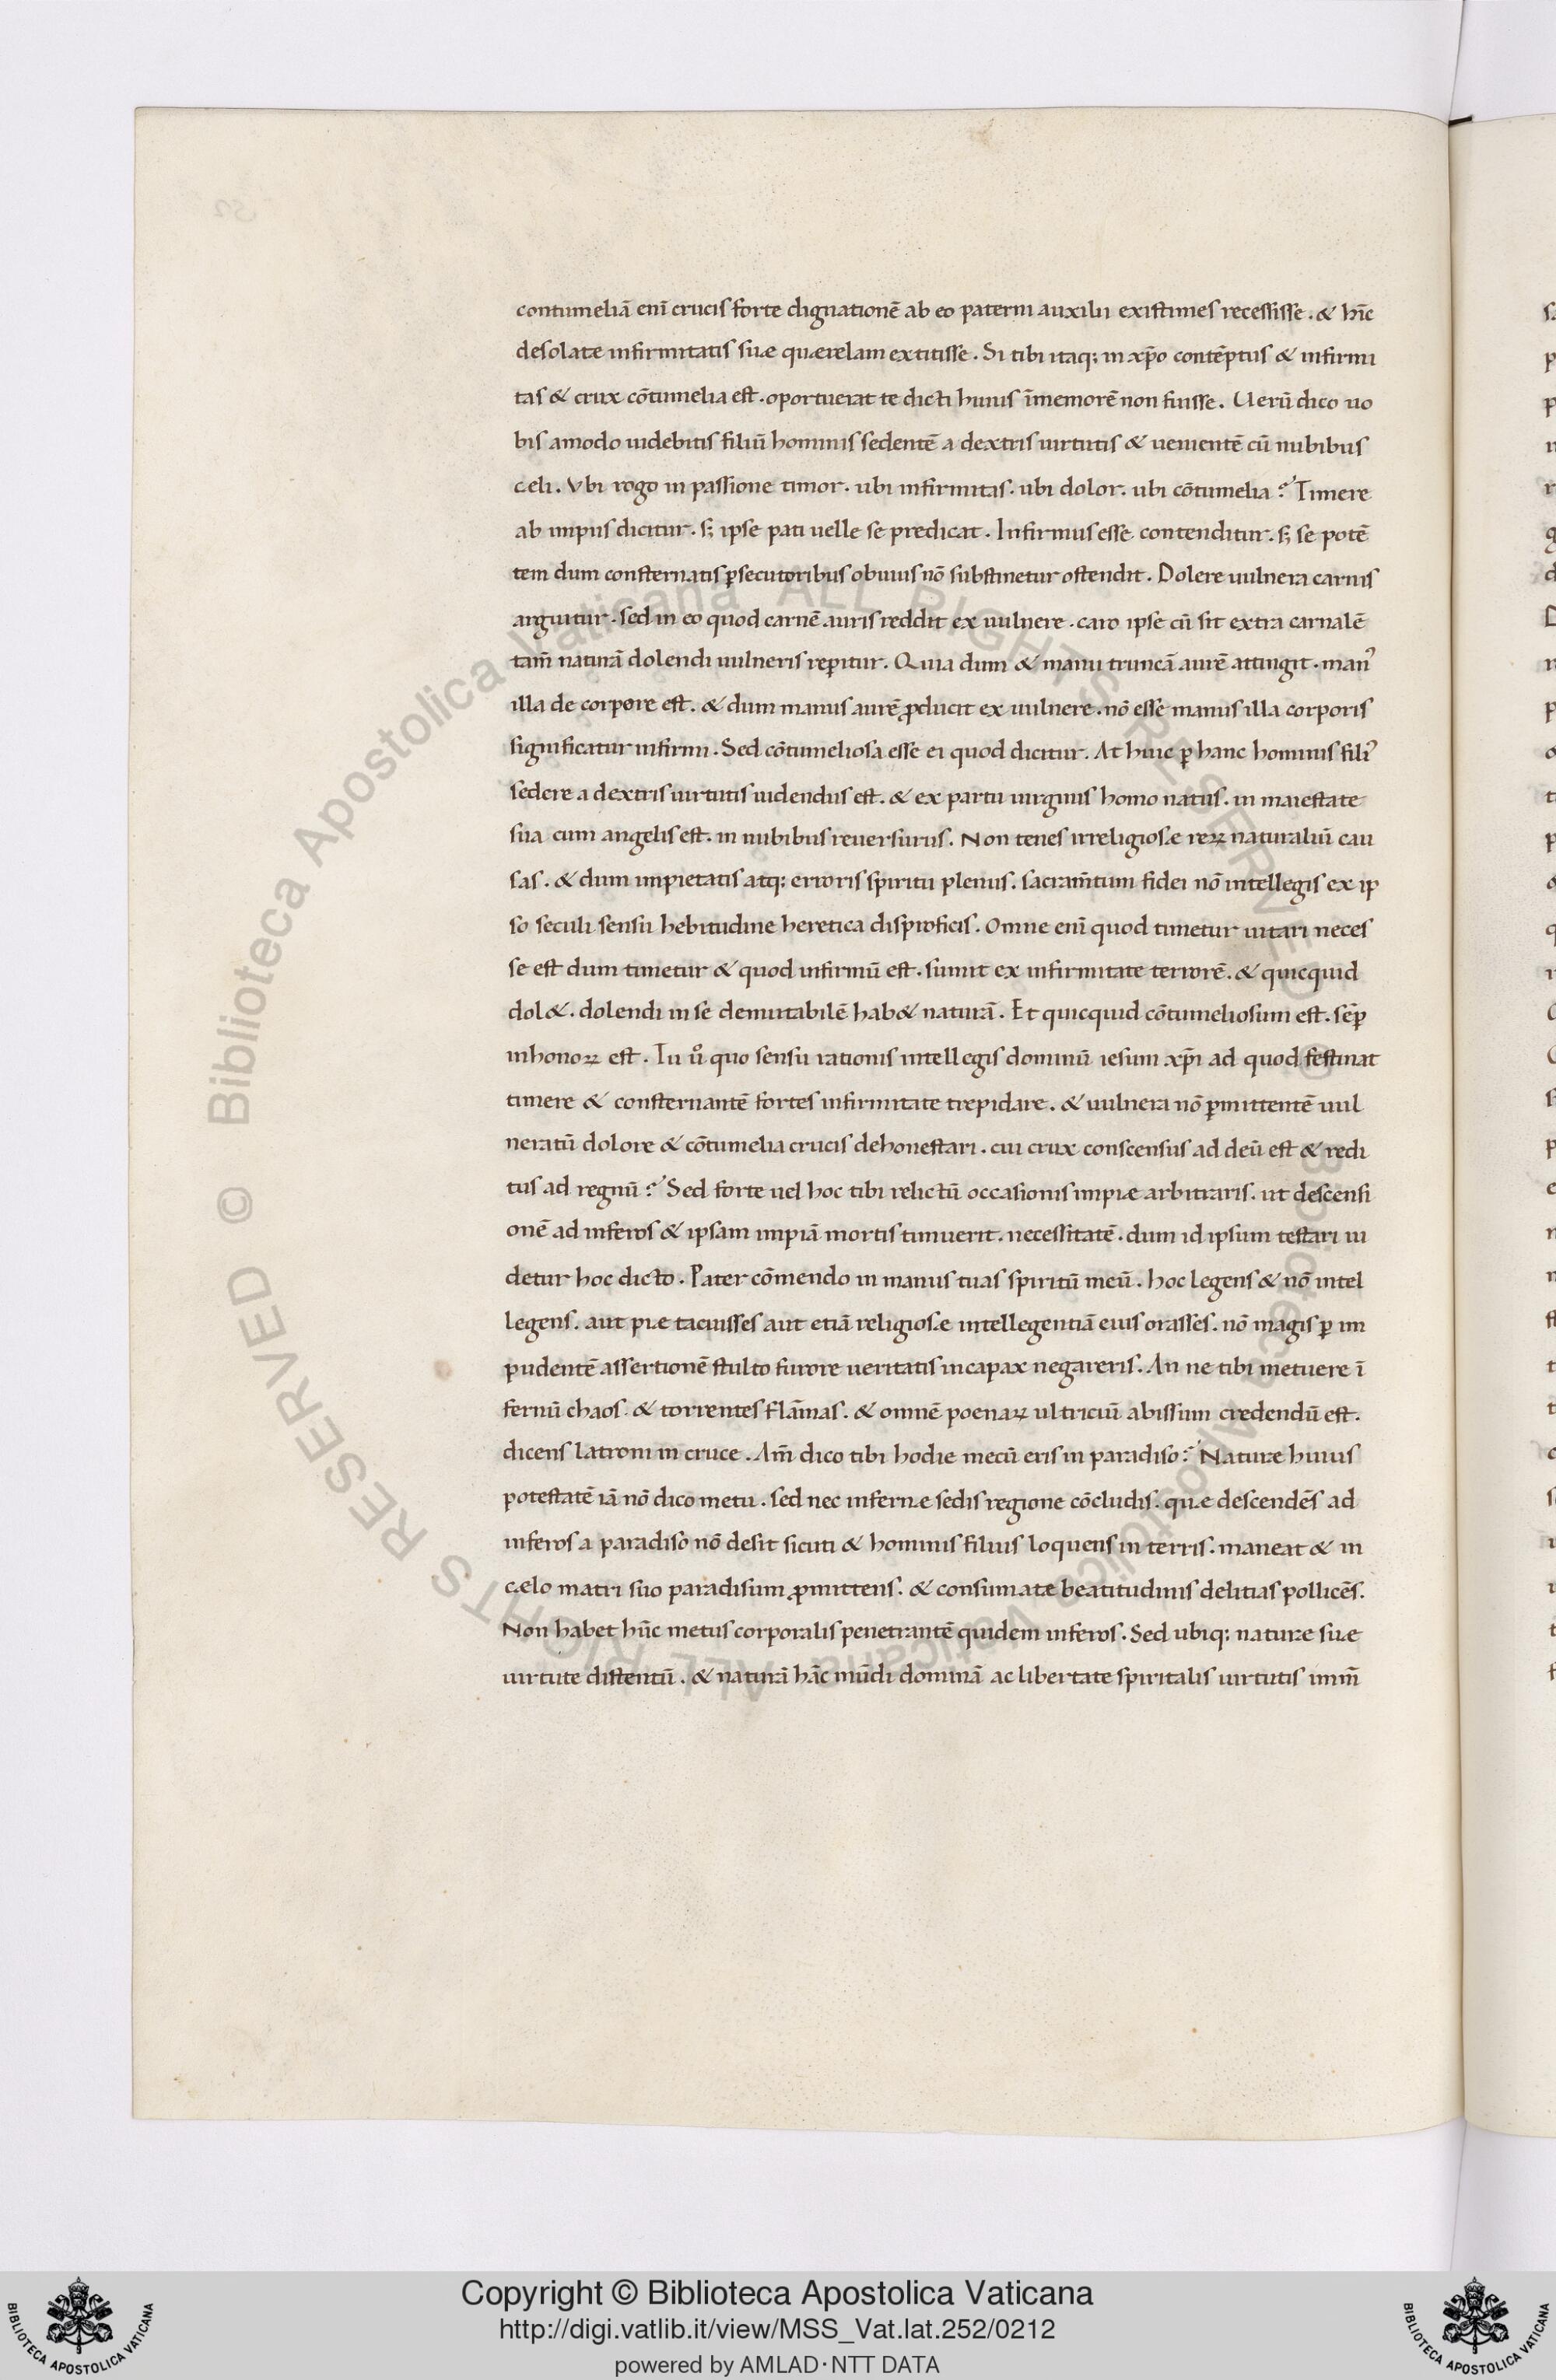 contumeliā enī crucis forte dignationē ab eo paterni auxilii existimes recessisse. & hīc
desolatæ infirmitatis suæ quærelam extitisse. Si tibi itaq; in xp̄o contēptus & infirmi
tas & crux cōtumelia est. oportuerat te dicti huius īmemorē non fuisse. Uerū dico uo
bis amodo uidebitis filiū hominis sedentē a dextris uirtutis & uenientē cū nubibus
celi. Vbi rogo in passione timor. ubi infirmitas. ubi dolor. ubi cōtumelia? Timere
ab impiis dicitur. s; ipse pati uelle se predicat. Infirmus esse contenditur. s; se potē
tem dum consternatis ꝑsecutoribus obuius nō substinetur ostendit. Dolere uulnera carnis
arguitur. sed in eo quod carnē auris reddit ex uulnere. caro ipse cū sit extra carnalē
tam̄ naturā dolendi uulneris reꝑitur. Quia dum & manu truncā aurē attingit. manꝰ
illa de corpore est. & dum manus aurē ꝓducit ex uulnere. nō esse manus illa corporis
significatur infirmi. Sed cōtumeliosa esse ei quod dicitur. At huic ꝑ hanc hominis filiꝰ
sedere a dextris uirtutis uidendus est. & ex partu uirginis homo natus. in maiestate
sua cum angelis est. in nubibus reuersurus. Non tenes irreligiosæ reꝝ naturaliū cau
sas. & dum impietatis atq; erroris spiritu plenus. sacram̄tum fidei nō intellegis ex ip
so seculi sensu hebitudine heretica disproficis. Omne enī quod timetur uitari neces
se est dum timetur & quod infirmū est. sumit ex infirmitate terrorē. & quicquid
dol&. dolendi in se demutabilē hab& naturā. Et quicquid cōtumeliosum est. sēꝑ
inhonoꝝ est. Tu u̇̊ quo sensu rationis intellegis dominū iesum xp̄i ad quod festinat
timere & consternantē fortes infirmitate trepidare. & uulnera nō ꝑmittentē uul
neratū dolore & cōtumelia crucis dehonestari. cui crux conscensus ad deū est & redi
tus ad regnū? Sed forte uel hoc tibi relictū occasionis impiæ arbitraris. ut descensi
onē ad inferos & ipsam impiā mortis timuerit. necessitatē. dum id ipsum testari ui
detur hoc dicto. Pater cōmendo in manus tuas spiritū meū. hoc legens & nō intel
legens. aut præ tacuisses aut etiā religiosæ intellegentiā eius orasses. nō magis ꝑ im
pudentē assertionē stulto furore ueritatis incapax negareris. An ne tibi metuere ī
fernū chaos. & torrentes flāmas. & omnē poenaꝝ ultriciū abissum credendū est.
dicens latroni in cruce. Am̄ dico tibi hodie mecū eris in paradiso? Naturæ huius
potestatē iā nō dico metu. sed nec infernæ sedis regione cōcludis. quæ descendēs ad
inferos a paradiso nō desit sicuti & hominis filius loquens in terris. maneat & in
cælo matri suo paradisum ꝓmittens. & consumatæ beatitudinis delitias pollicēs.
Non habet hūc metus corporalis penetrantē quidem inferos. Sed ubiq; naturæ suæ
uirtute distentū. & naturā hāc mūdi dominā ac libertate spiritalis uirtutis imm̄
Copyright © Biblioteca Apostolica Vaticana
http://digi.vatlib.it/view/MSS_Vat.lat.252/0212
powered by AMLAD·NTT DATA